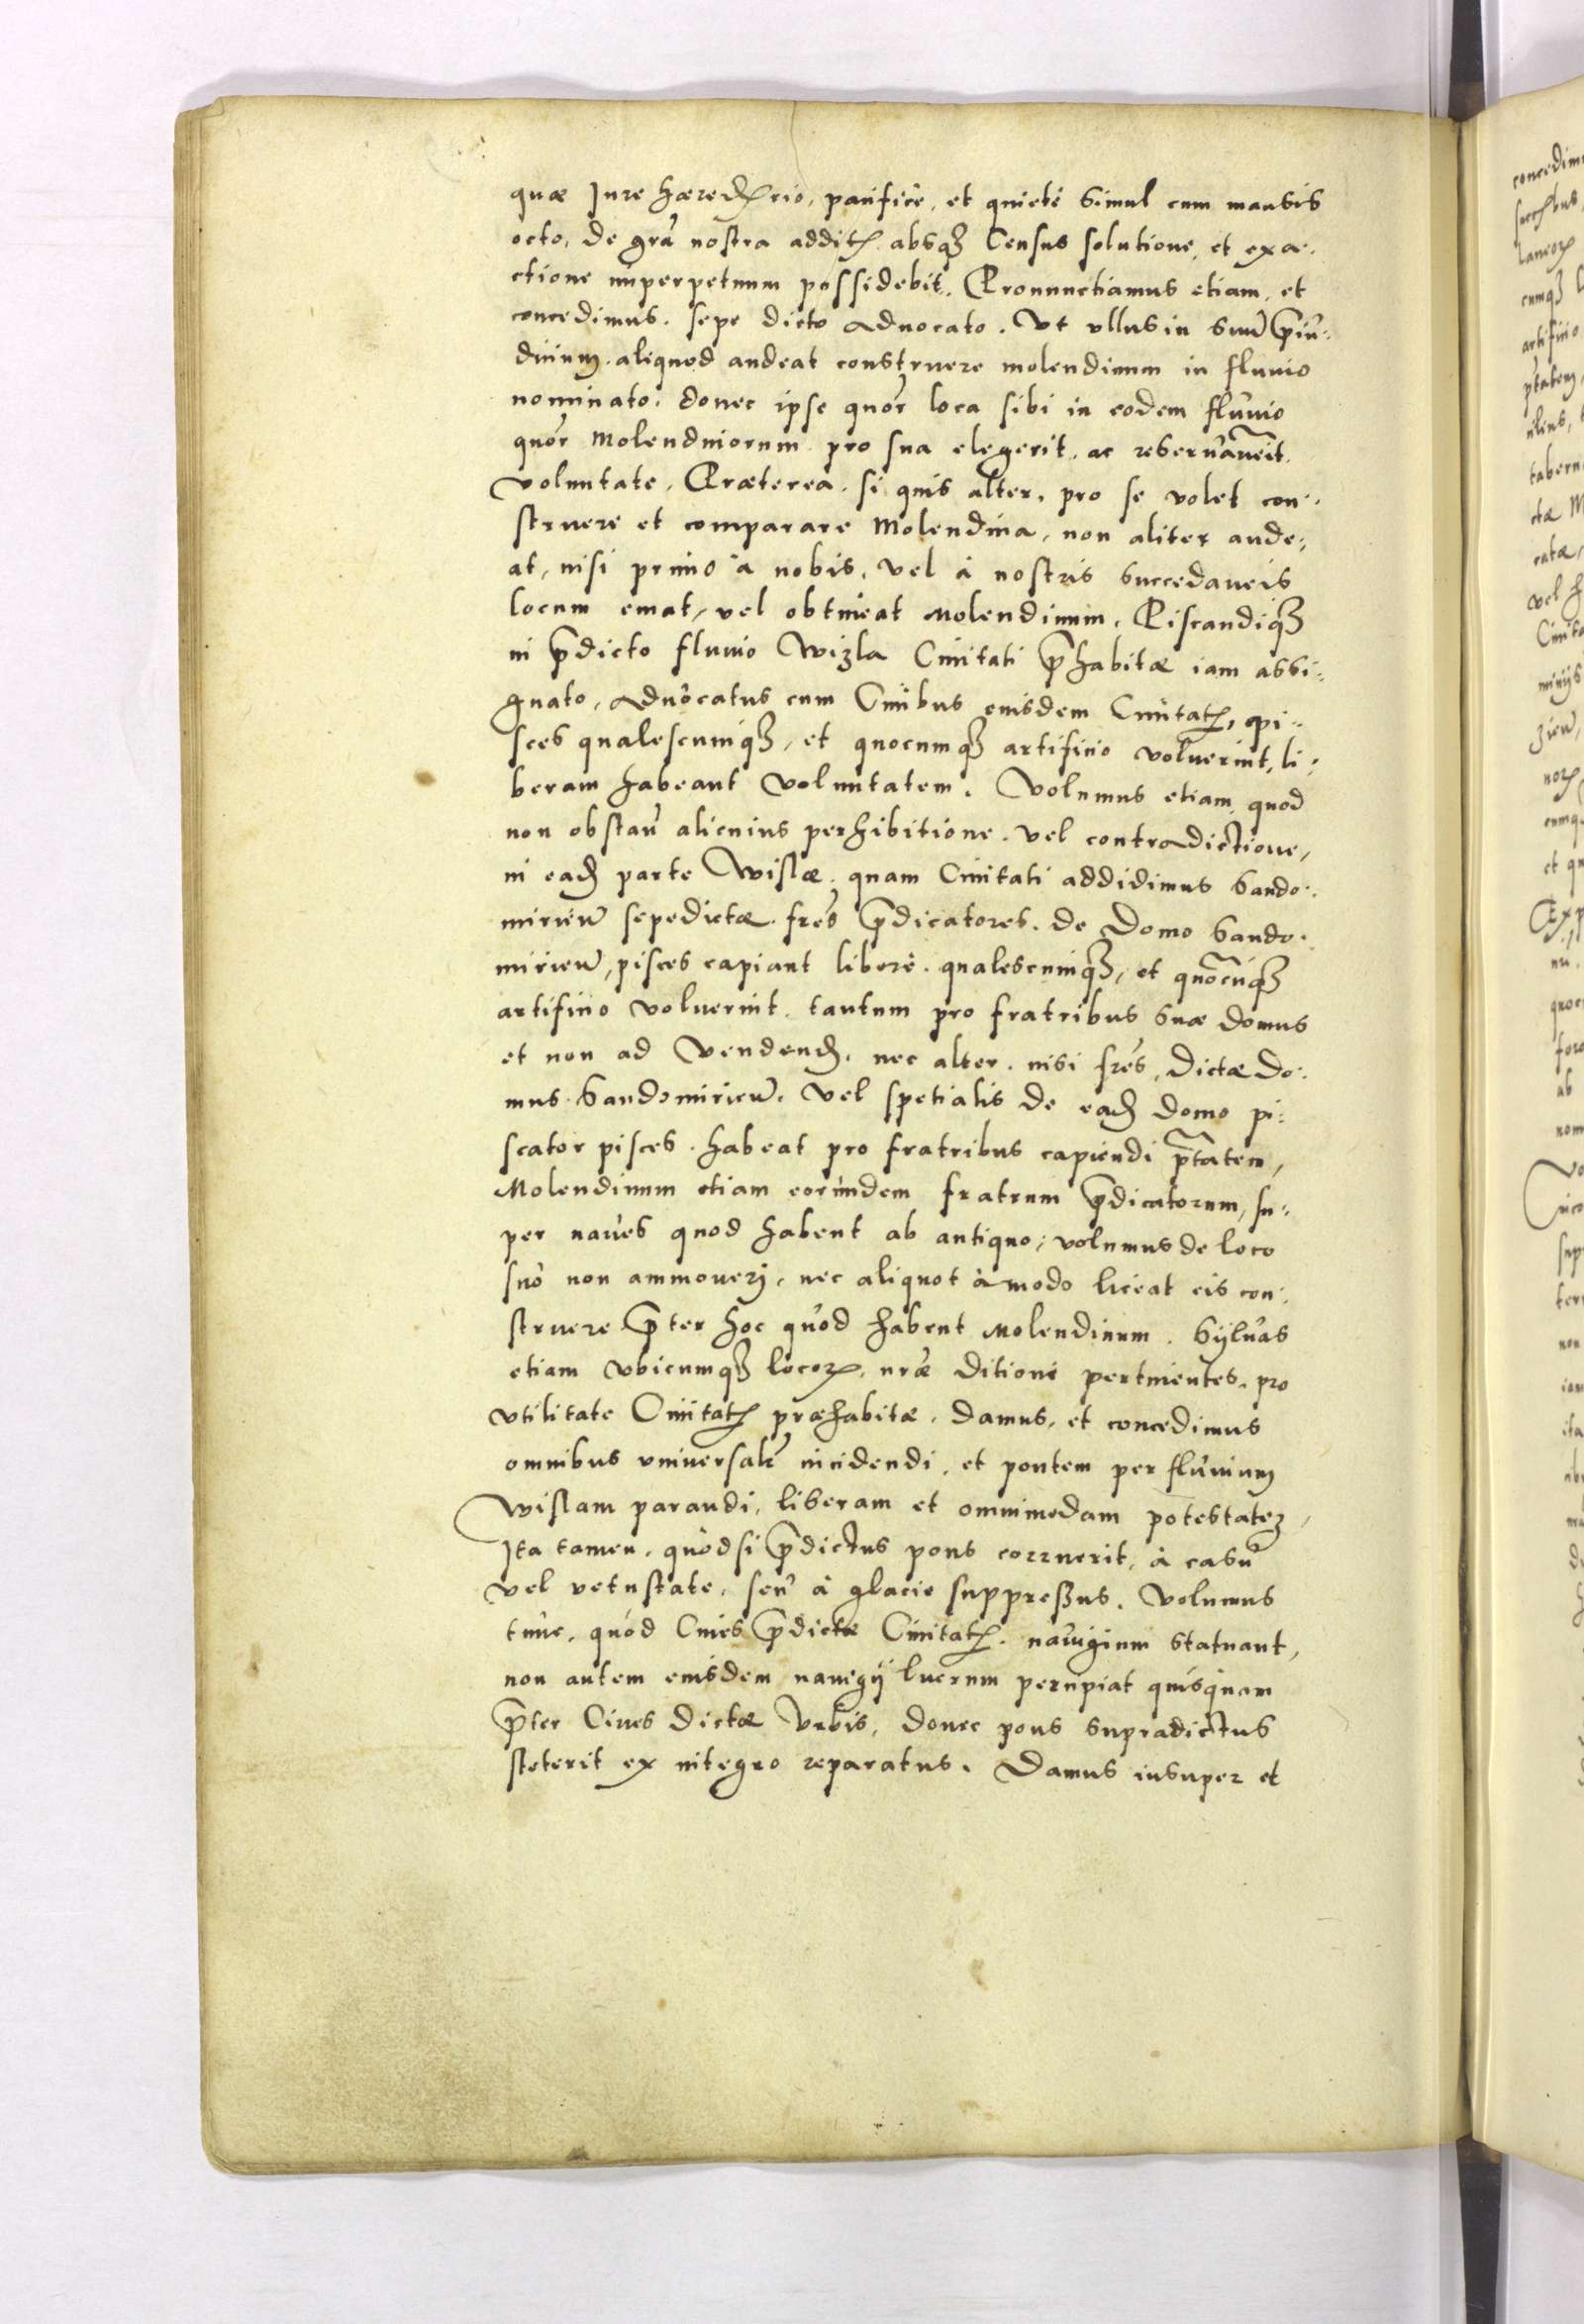 quæ Jure hæređꝭrio, pacifice, et quiete simul cum mansis
octo, de grã nostra additꝭ absqꝫ Census solutione, et exa-
ctione inperpetuum possidebit. Pronunctiamus etiam, et
concedimus. sepe dicto Aduocato. Vt vllus in suũ p̃iu-
dicium aliquod audeat construere molendinum in fluuio
nominato, donec ipse quor̃ loca sibi in eodem fluuio
quor̃ Molendinorum pro sua elegerit, ac reseruauerit
voluntate. Præterea, si quis alter, pro se volet con-
struere et comparare Molendina, non aliter aude-
at, nisi primo à nobis, vel à nostris succedaneis
locum emat, vel obtineat Molendinum. Piscandiqꝫ
in p̃dicto fluuio Wizla Ciuitati p̃habitæ iam assi-
gnato, Aduocatus cum Ciuibus eiusdem Ciuitatꝭ, pi-
sces qualescumqꝫ, et quocumqꝫ artificio voluerint, li-
beram habeant voluntatem. Volumus etiam quod
non obstañ alicuius perhibitione vel contradictione,
in eađ parte Wislæ quam Ciuitati addidimus Sando-
mirieñ sepedictæ. fres̃ p̃dicatores de Domo Sando-
mirieñ, pisces capiant liberè qualescumqꝫ, et quõcũqꝫ
artificio voluerint tantum pro fratribus suæ domus
et non ad vendenđ. nec alter nisi fres̃, Dictæ Do-
mus Sandomirieñ. vel spetialis de eađ domo pi-
scator pisces habeat pro fratribus capiendi p̃tatem,
Molendinum etiam eorundem fratrum p̃dicatorum, su-
per naues quod habent ab antiquo, volumus de loco
suo non ammoueri, nec aliquot àmodo liceat eis con-
struere p̃ter hoc quod habent Molendinum. Syluas
etiam vbicumqꝫ locorꝝ nræ̃ ditioni pertinentes, pro
vtilitate Ciuitatꝭ præhabitæ, damus, et concedimus
omnibus vniuersalꝭ incidendi, et pontem per fluuium
Wislam parandi, liberam et omnimodam potestateꝫ
Ita tamen, quòd si p̃dictus pons corruerit, à casu
vel vetustate, seu à glacie suppreßus. Volumus
tunc, quòd Ciues p̃dictæ Ciuitatꝭ nauigium statuant,
non autem eiusdem nauegij lucrum percipiat quisquam
p̃ter Ciues Dictæ Vrbis, donec pons supradictus
steterit ex integro reparatus. Damus insuper et